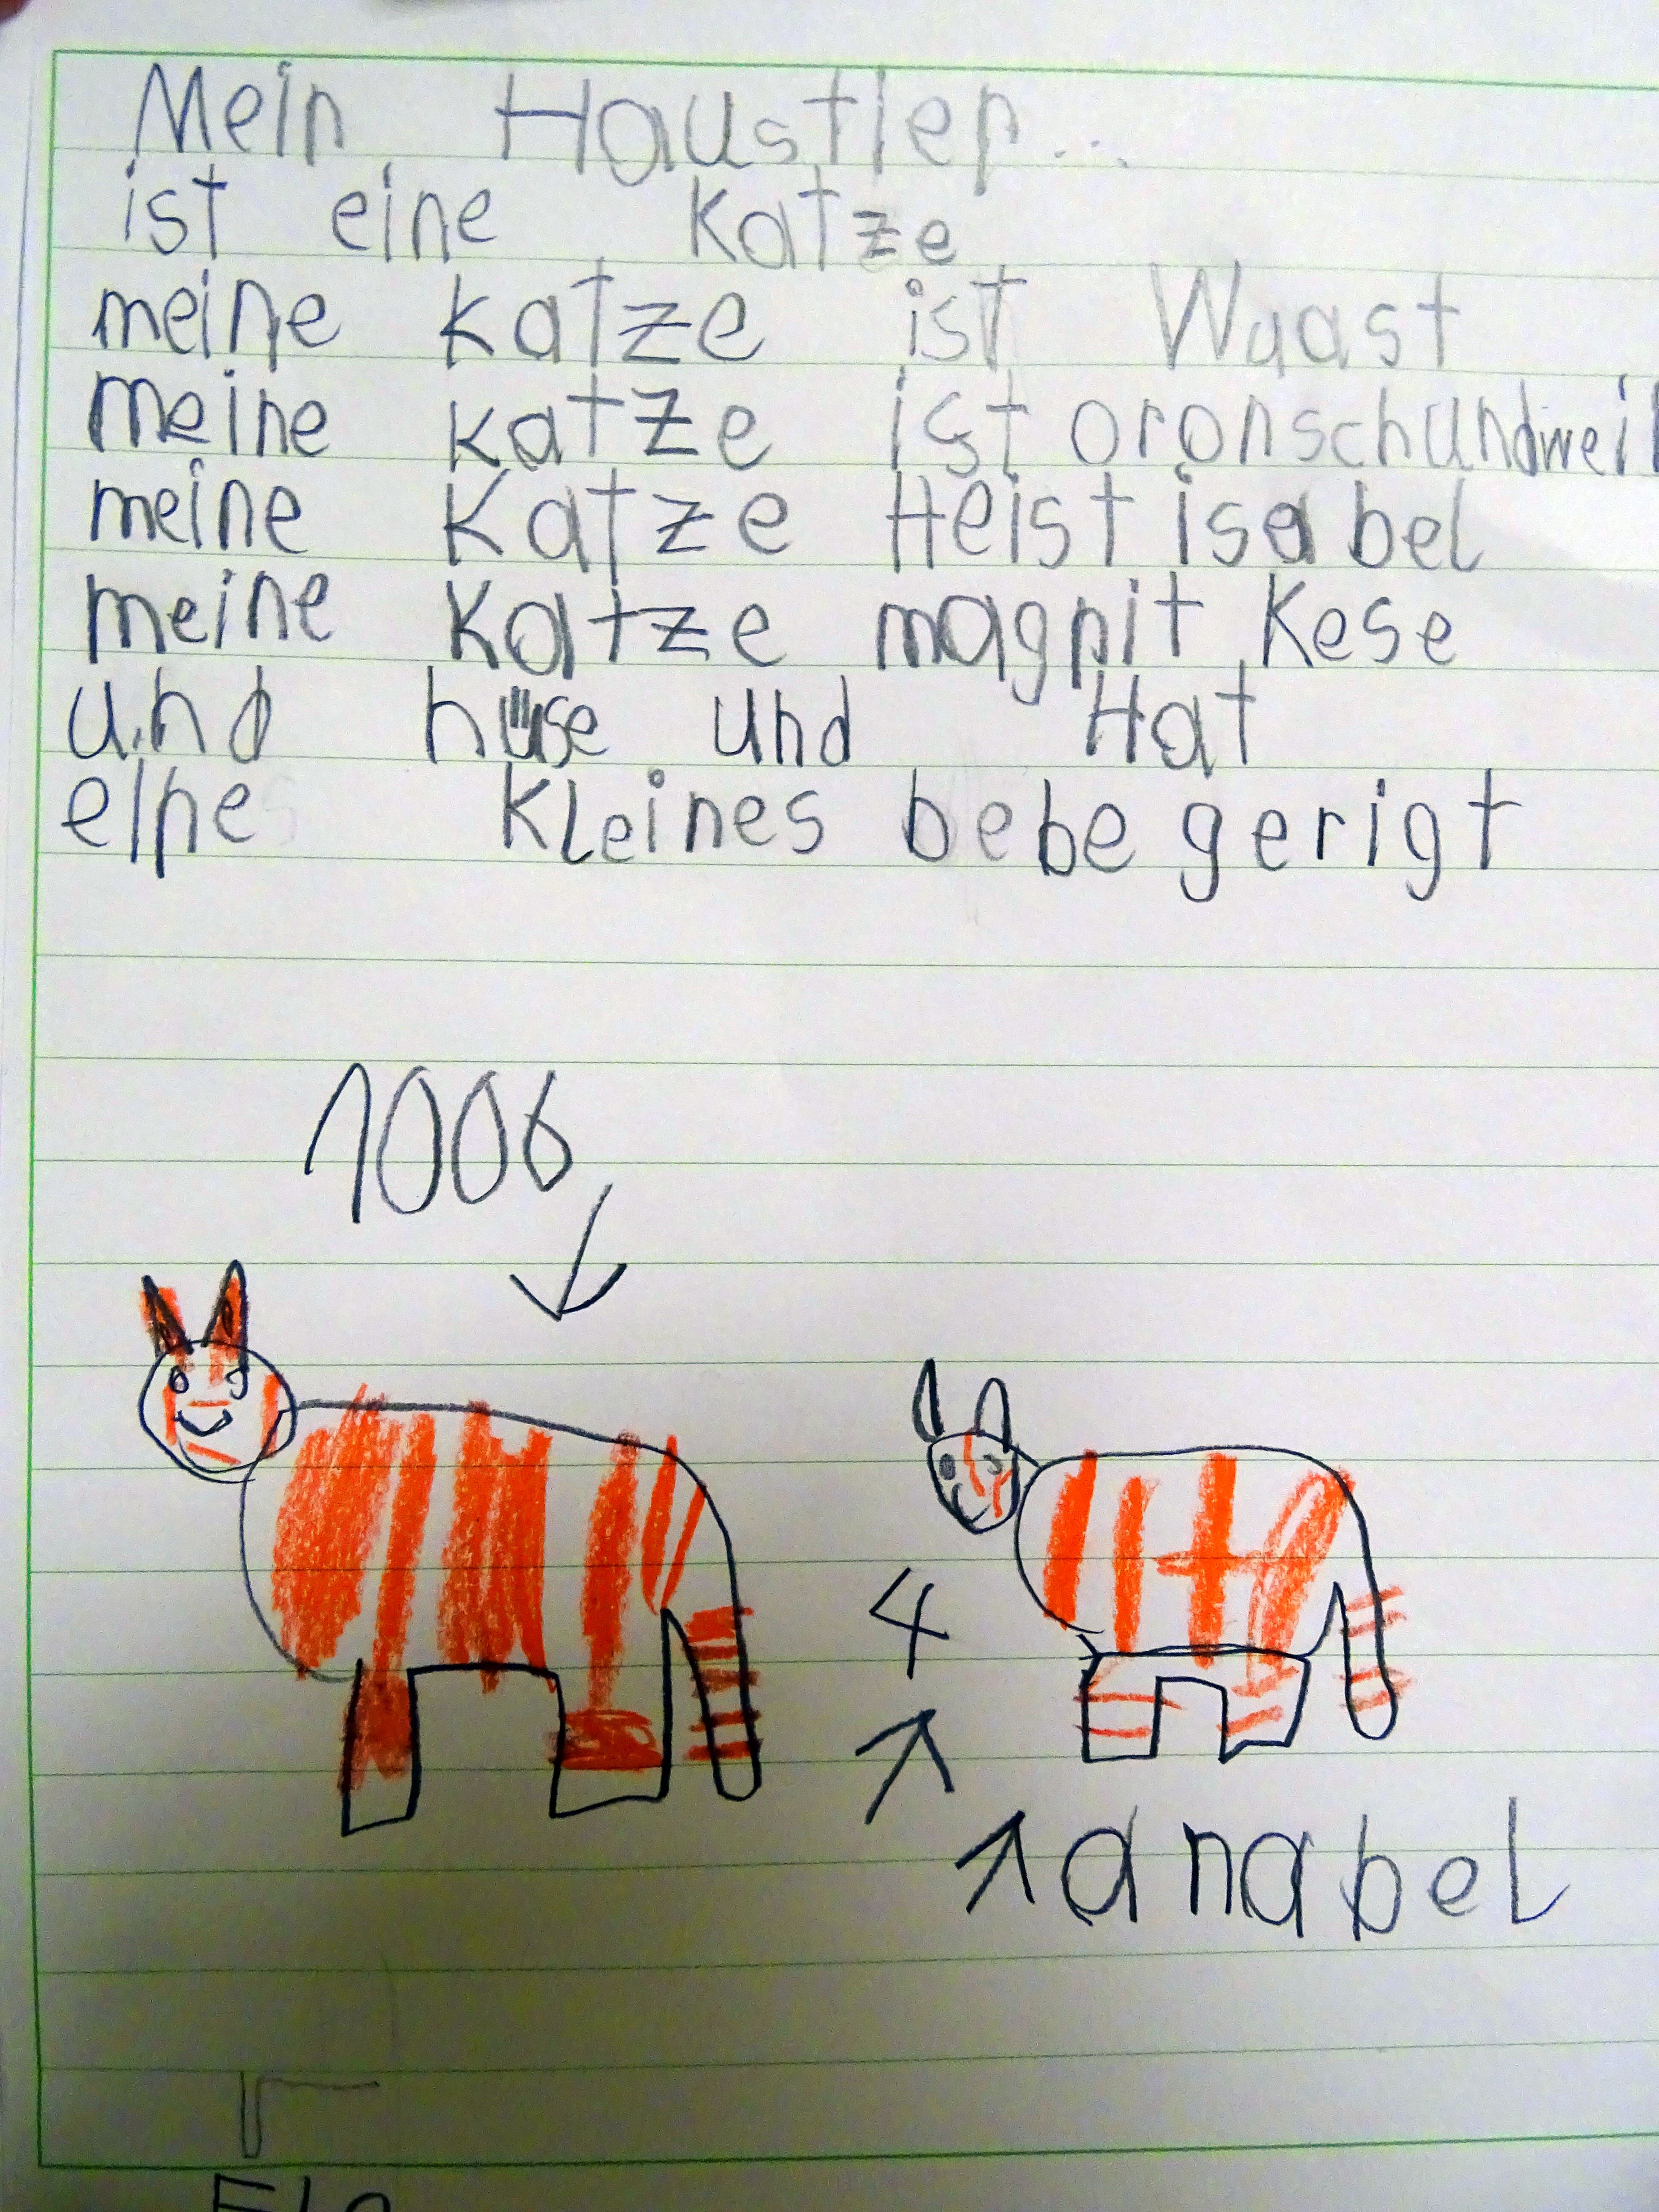 Mein Haustier...
ist eine Katze
meine Katze ist Wuast
meine katze ist oronschundweiß
meine Katze Heist isabel
meine Katze mag nit Kese
und nüse und Hat
eine kleines bebe gerigt
1006
4
anabel